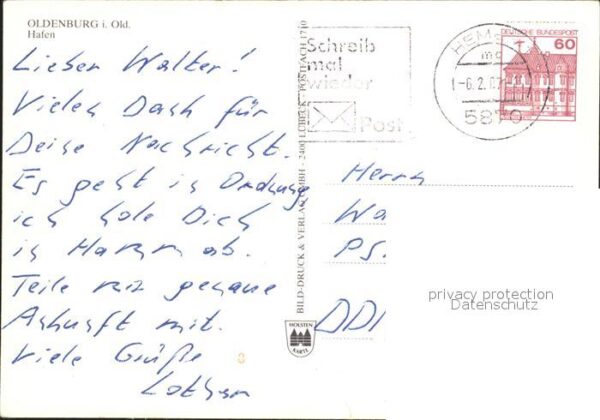 OLDENBURG i. Old.
Hafen
Lieber Walter!
Vielen Dank für
Deine Nachricht.
Es geht in Ordnung
ich hole Dich
in Hamm ab.
Teile mir genaue
Ankunft mit.
Viele Grüße
Lothar
BILD-DRUCK & VERLAG GMBH - 2400 LÜBECK - POSTFACH 1710
HOLSTEN
KARTE
Schreib
mal
wieder
Post
HEME
mc
-6.2.
5870
DEUTSCHE BUNDESPOST
60
Herrn
Wa
PS.
DDR
privacy protection
Datenschutz